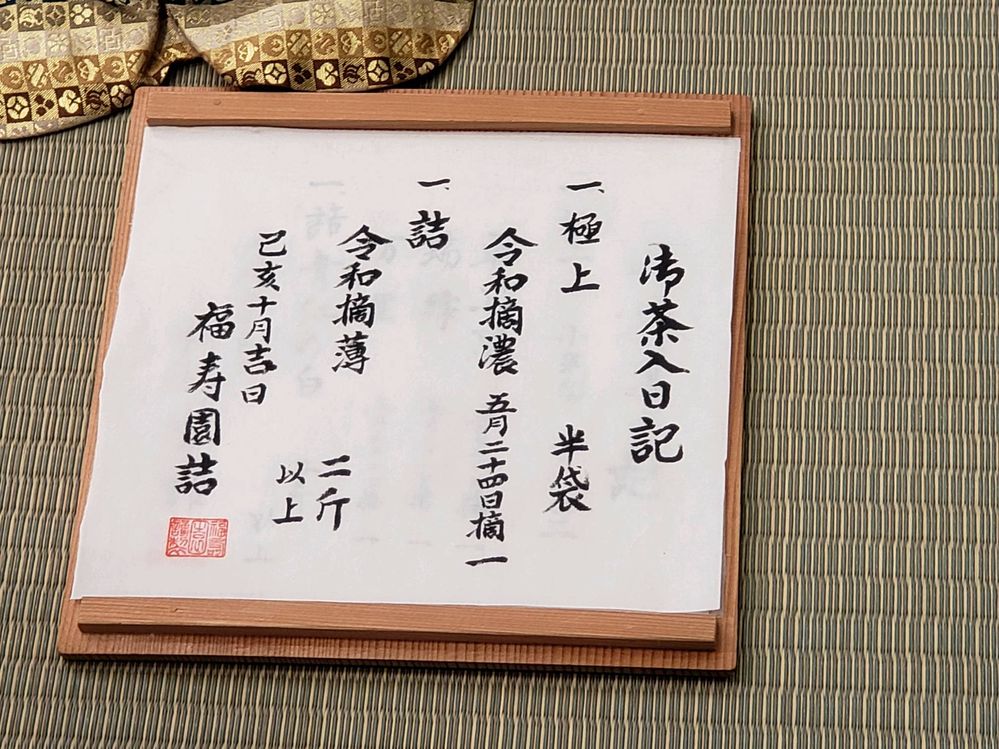 御茶入日記
一、極上 半袋
令和摘濃 五月二十四日摘 一
一、詰
令和摘薄 二斤
以上
己亥十月吉日
福寿園詰